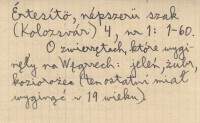 Értesítö, népszerü szak
(Kolozsvár) 4, nr 1: 1-60.
O zwierzętach, które wygi-
nęły na Węgrzech: jeleń, żubr,
koziorożec (ten ostatni miał
wyginąć w 19 wieku)